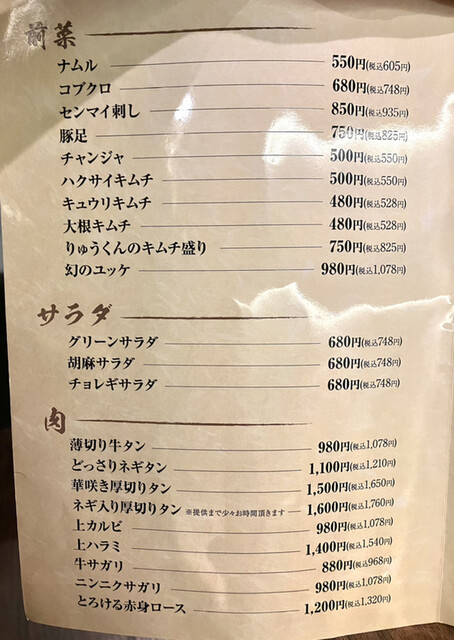 前菜
ナムル 550円(税込605円)
コブクロ 680円(税込748円)
センマイ刺し 850円(税込935円)
豚足 750円(税込825円)
チャンジャ 500円(税込550円)
ハクサイキムチ 500円(税込550円)
キュウリキムチ 480円(税込528円)
大根キムチ 480円(税込528円)
りゅうくんのキムチ盛り 750円(税込825円)
幻のユッケ 980円(税込1,078円)
サラダ
グリーンサラダ 680円(税込748円)
胡麻サラダ 680円(税込748円)
チョレギサラダ 680円(税込748円)
肉
薄切り牛タン 980円(税込1,078円)
どっさりネギタン 1,100円(税込1,210円)
華咲き厚切りタン 1,500円(税込1,650円)
ネギ入り厚切りタン ※提供まで少々お時間頂きます 1,600円(税込1,760円)
上カルビ 980円(税込1,078円)
上ハラミ 1,400円(税込1,540円)
牛サガリ 880円(税込968円)
ニンニクサガリ 980円(税込1,078円)
とろける赤身ロース 1,200円(税込1,320円)